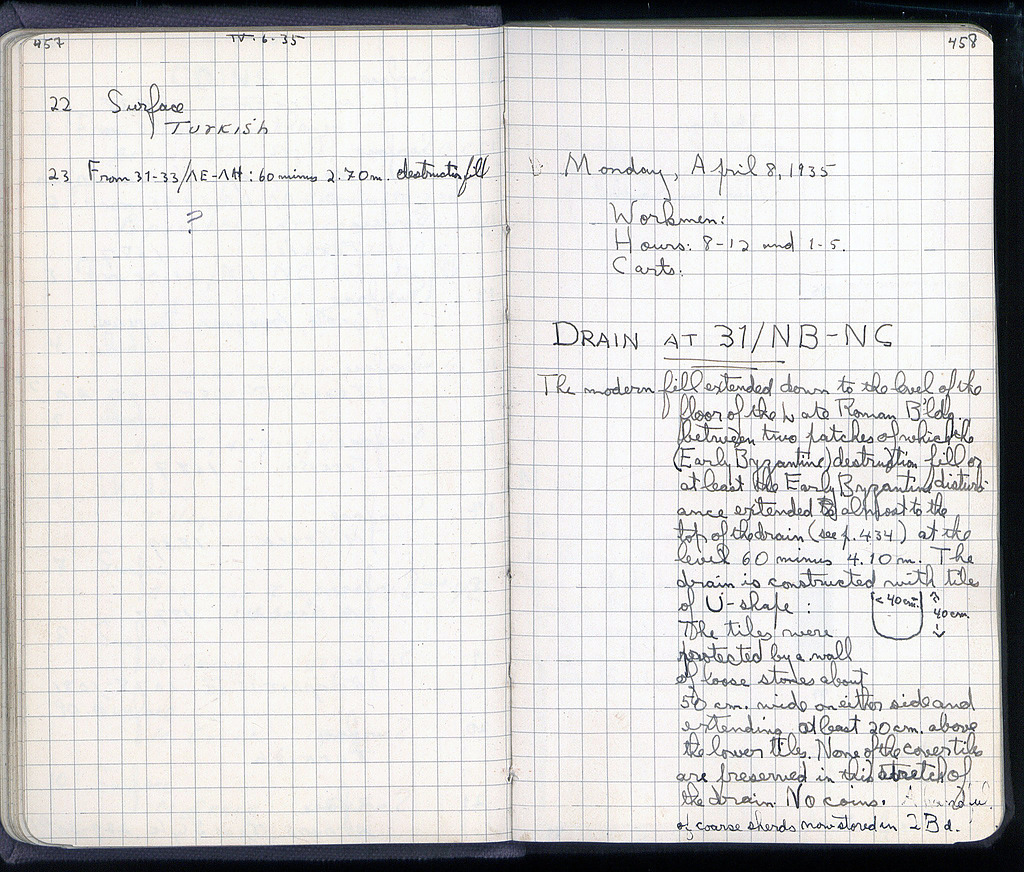 457
IV·6·35
22 Surface
Turkish
23 From 31-33/ΛE-ΛH: 60 minus 2.70 m. destruction fill
?
458
Monday, April 8, 1935
Workmen:
Hours: 8-12 and 1-5.
Carts:
DRAIN AT 31/NB-NC
The modern fill extended down to the level of the
floor of the Late Roman B'ldg.
between two patches of which the
(Early Byzantine) destruction fill or
at least the Early Byzantine disturb-
ance extended almost to the
top of the drain (see p. 434) at the
level 60 minus 4.10 m. The
drain is constructed with tiles
of U-shape:
<40 cm.>
40 cm.
The tiles were
protected by a wall
of loose stones about
50 cm. wide on either side and
extending at least 20 cm. above
the lower tiles. None of the cover tiles
are preserved in this stretch of
the drain. No coins.
of coarse sherds now stored in 2 B d.